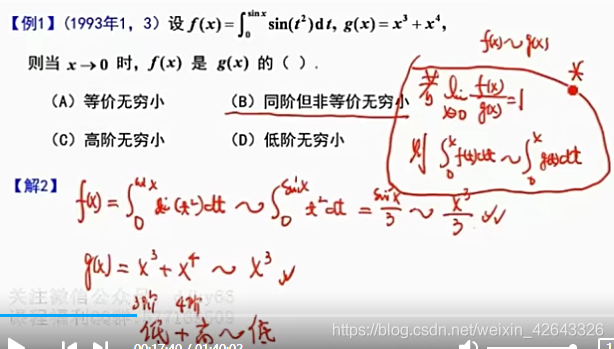 【例1】(1993年1，3) 设 f(x)=∫₀^{sin x} sin(t²)dt, g(x)=x³+x⁴,
则当 x→0 时，f(x) 是 g(x) 的（ ）.
(A) 等价无穷小 (B) 同阶但非等价无穷小
(C) 高阶无穷小 (D) 低阶无穷小
f(x)~g(x)
lim_{x→0} f(x)/g(x)=1
则 ∫₀^x f(t)dt ~ ∫₀^x g(t)dt
【解2】
f(x)=∫₀^{sin x} sin(t²)dt ~ ∫₀^{sin x} t²dt = sin³x/3 ~ x³/3
g(x)=x³+x⁴ ~ x³
3阶 4阶
低+高~低
关注微信公众号
https://blog.csdn.net/weixin_42643326
00:17:40 / 01:40:02